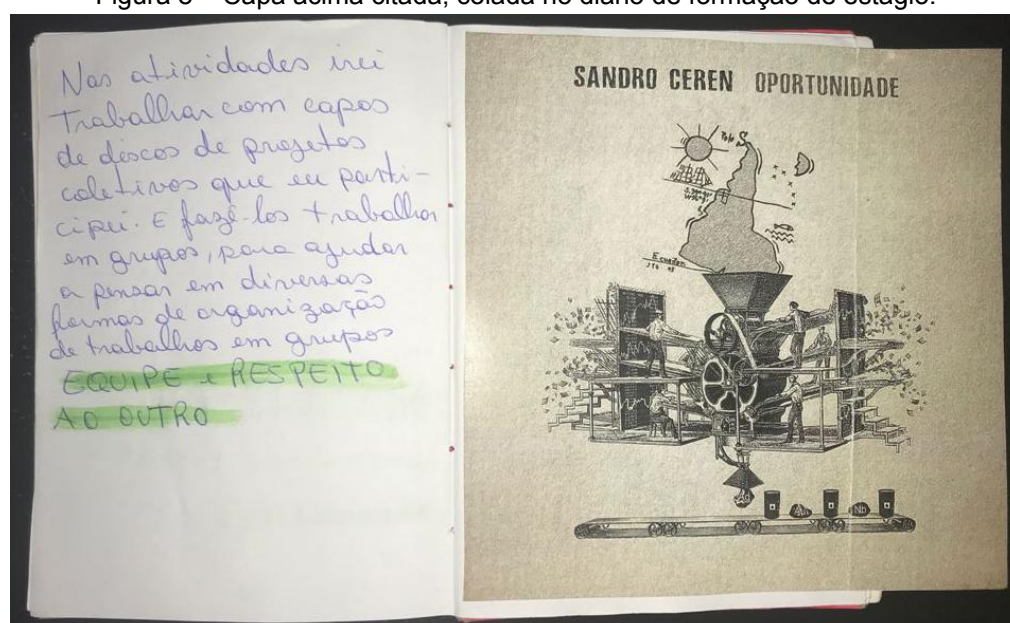 Figura 3 – Capa acima citada, colada no diário de formação de estágio.
Nas atividades irei
Trabalhar com capas
de discos de projetos
coletivos que eu parti-
cipei. E fazê-los trabalhar
em grupos, para ajudar
a pensar em diversas
formas de organização
de trabalhos em grupos
EQUIPE e RESPEITO
AO OUTRO
SANDRO CEREN OPORTUNIDADE
Polo S
Ecuador
Nb